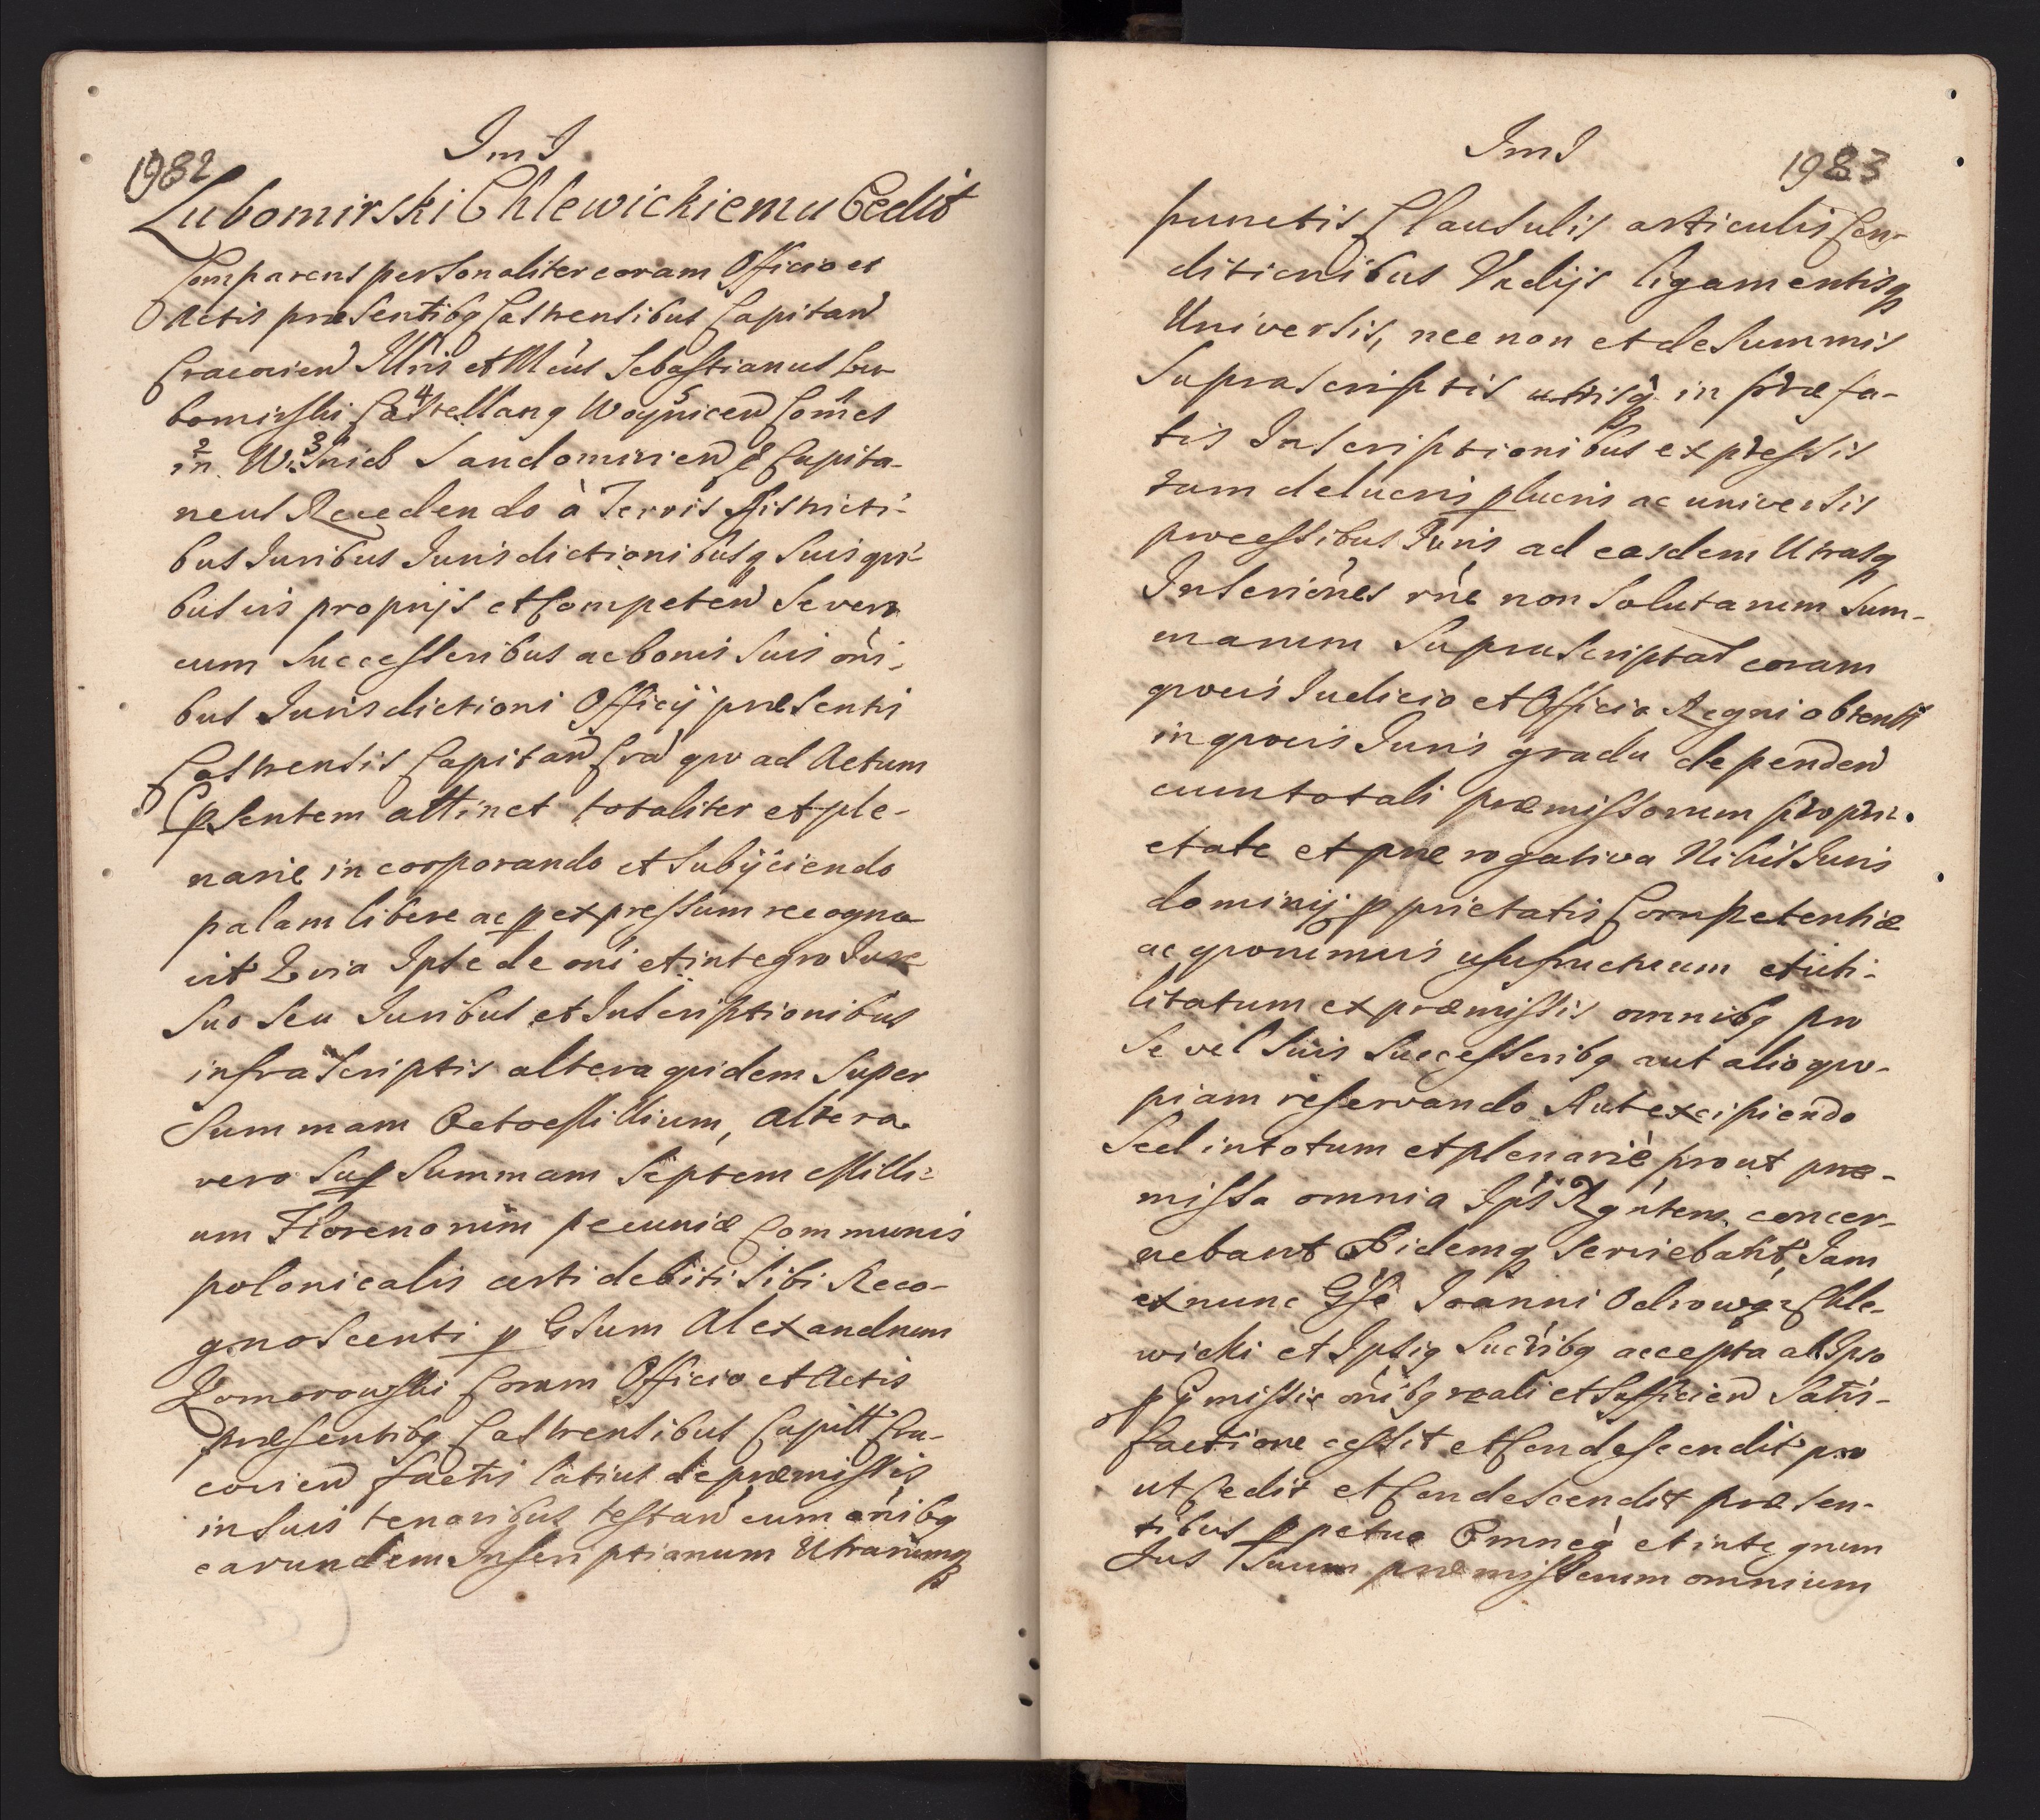 1982
ImI
Lubomirski Chlewickiemu Cedit
Comparens personaliter coram Officio et
Actis præsentibq Castrensibus Capitan
Cracovien Illris et Mcus Sebastianus Lu-
bomirski Castellanq Woynicen Comes
in Wisnicz Sandomirien & Capita-
neus Recedendo à Terris Districti-
bus Juribus Jurisdictionibusq suis qui-
busvis proprijs et Competen Se vero
cum Successoribus ac bonis suis oni-
bus Jurisdictioni Officij præsentis
Castrensis Capitan Cra quo ad Actum
pſentem attinet totaliter et ple-
narie incorporando et Subijciendo
palam libere ac p expressum recogno
vit Quia Ipse de oni et integro Jure
Suo Seu Juribus et Inscriptionibus
infrascriptis altera quidem Super
Summam Octo Millium, altera
vero Sup Summam Septem Milli-
um Florenorum pecuniæ Communis
polonicalis certi debiti Sibi Reco-
gnoscenti p Gsum Alexandrum
Komorowski Coram Officio et Actis
præsentibq Castrensibus Capitt Cra-
covien factis latius de præmissis
in Suis tenoribus testan cum onibq
earundem Inscriptionum Utrarumq
ImI
1983
punctis Clausulis articulis Con-
ditionibus Vadijs ligamentisq
Universis, nec non et de Summis
Suprascriptis utrisq in præfa-
tis Inscriptionibus expressis
tum de lucris plucris ac universis
processibus Juris ad easdem Utrasq
Inscriones rne non Solutarum Sum-
marum Suprascriptar coram
quovis Judicio et Officio Regni obtentis
in quovis Juris gradu dependen
cum totali præmissorum propri-
etate et prærogativa Nihil Juris
dominij pprietatis Competentiæ
ac quorumvis usufructuum et uti-
litatum ex præmissis omnibq pro
Se vel Suis Successoribq aut alio quo-
piam reservando Aut excipiendo
Sed in totum et plenariè prout præ-
missa omnia Ips Rgntem concer-
nebant Eidemq serviebant, Jam
ex nunc Gso Joanni Odrowąz Chle-
wicki et Ipsiq Sucribq accepta ab Ipso
p pmissis onibq reali et Sufficien Satis-
factione cessit et Condescendit pro
ut Cedit et Condescendit præsen-
tibus ppetuo Omneq et integrum
Jus Suum præmissorum omnium